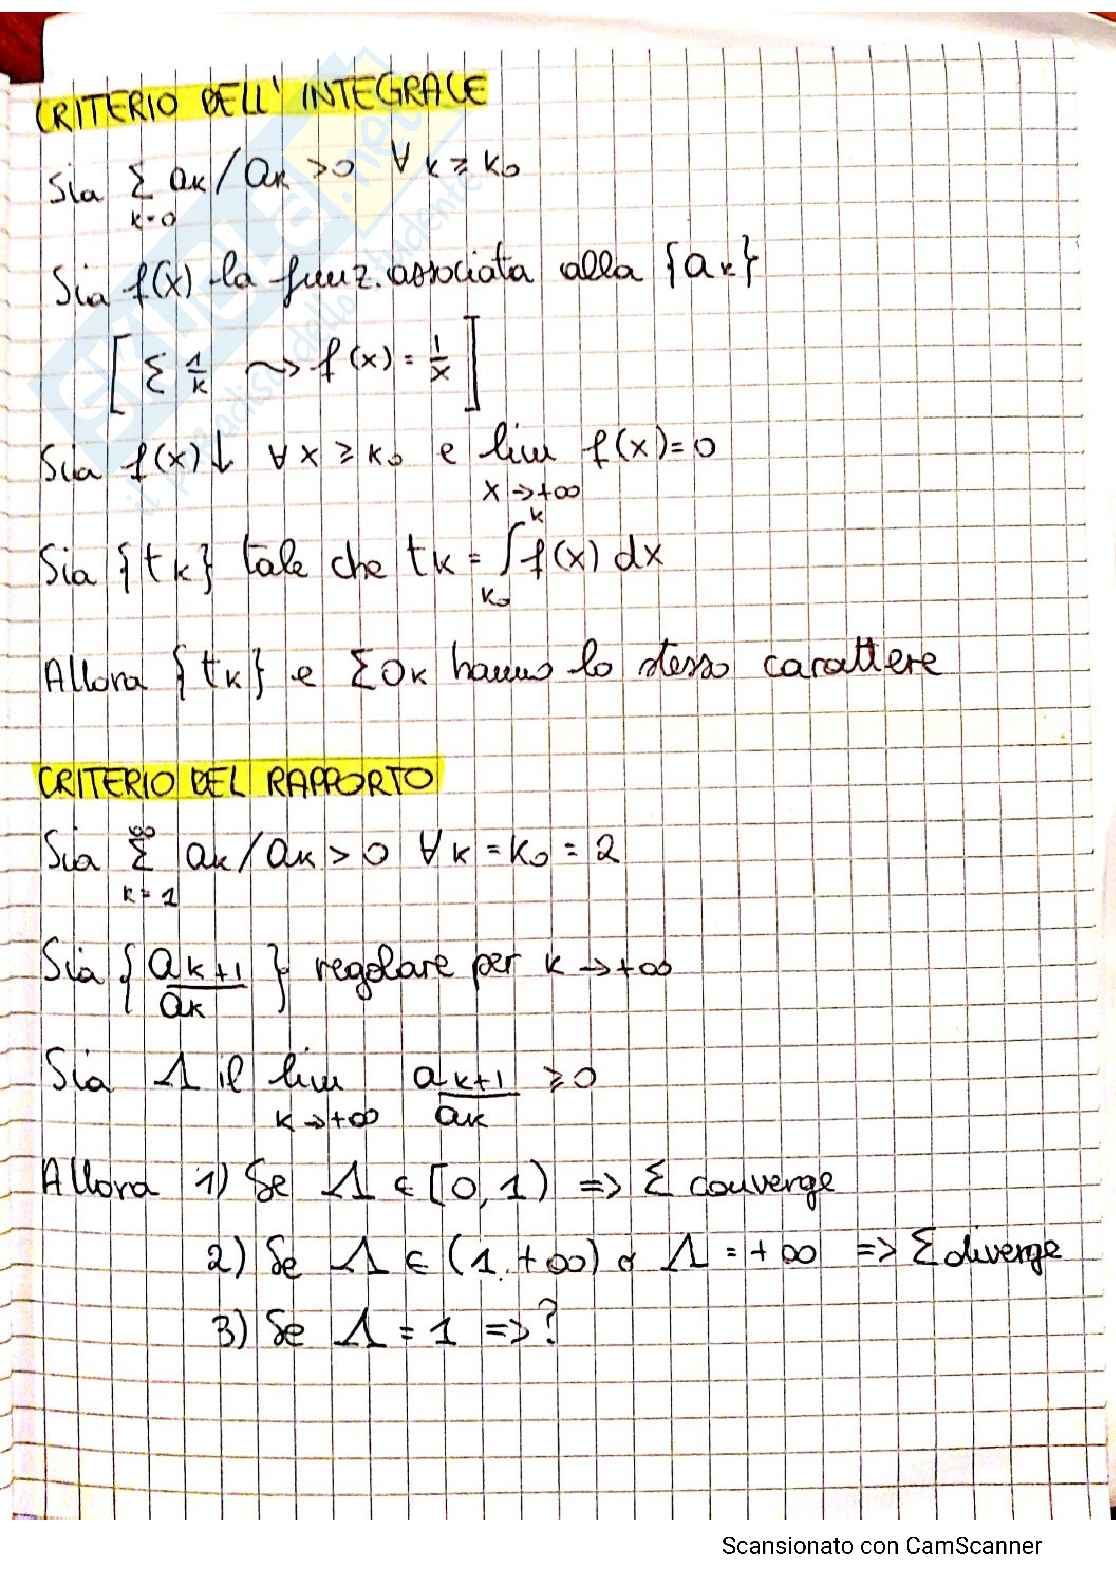 CRITERIO DELL'INTEGRALE
Sia Σ ak / ak > 0 ∀ k ≥ k0
k=0
Sia f(x) la funz. associata alla {ak}
[Σ 1/k ⤳ f(x) = 1/x]
Sia f(x)↓ ∀ x ≥ k0 e lim f(x) = 0
x→+∞
Sia {tk} tale che tk = ∫ f(x) dx
k
k0
Allora {tk} e Σak hanno lo stesso carattere
CRITERIO DEL RAPPORTO
∞
Sia Σ ak / ak > 0 ∀ k = k0 = 2
k=1
Sia {ak+1/ak} regolare per k→+∞
Sia Λ il lim ak+1/ak ≥ 0
k→+∞
Allora 1) Se Λ ∈ [0,1) => Σ converge
2) Se Λ ∈ (1,+∞) o Λ = +∞ => Σ diverge
3) Se Λ = 1 => ?
Scansionato con CamScanner